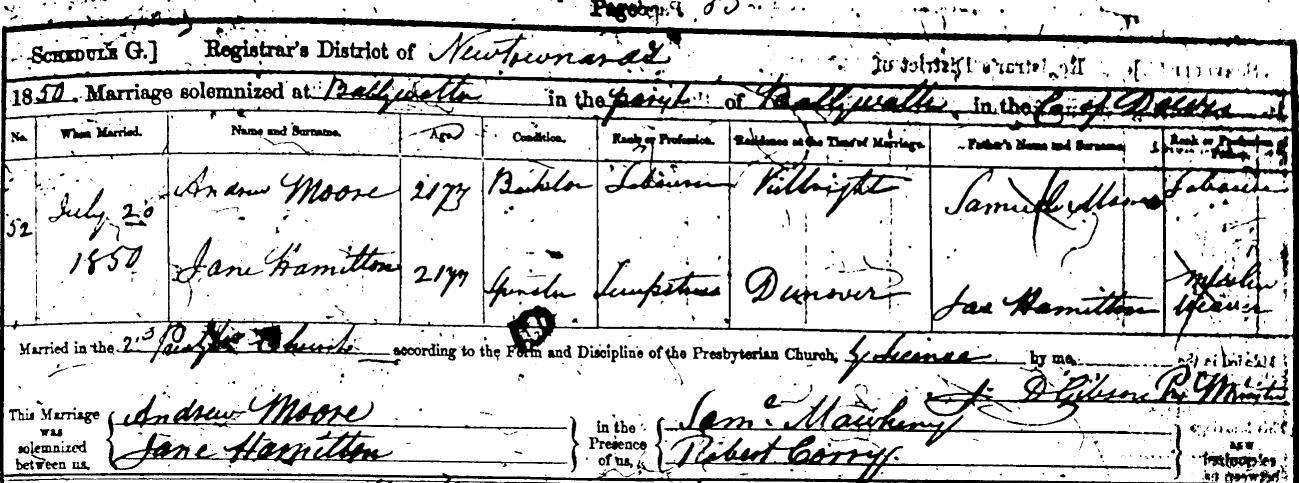 Page
SCHEDULE G.] Registrar's District of Newtownards
1850. Marriage solemnized at Ballywalter in the parish of Ballywalter in the Co of Down
No. When Married. Name and Surname. Age Condition. Rank or Profession. Residence at the Time of Marriage. Father's Name and Surname. Rank or Profession of Father.
52 July 20 1850 Andrew Moore 21 Bachelor Labourer Samuel Moore Labourer
Jane Hamilton 21 Spinster Dunover Jas Hamilton Muslin Weaver
Married in the 2nd Church according to the Form and Discipline of the Presbyterian Church, by license by me,
J. D Gibson Minister
This Marriage was solemnized between us, Andrew Moore in the Presence of us, Saml Mawhinny
Jane Hamilton Robert Corry.